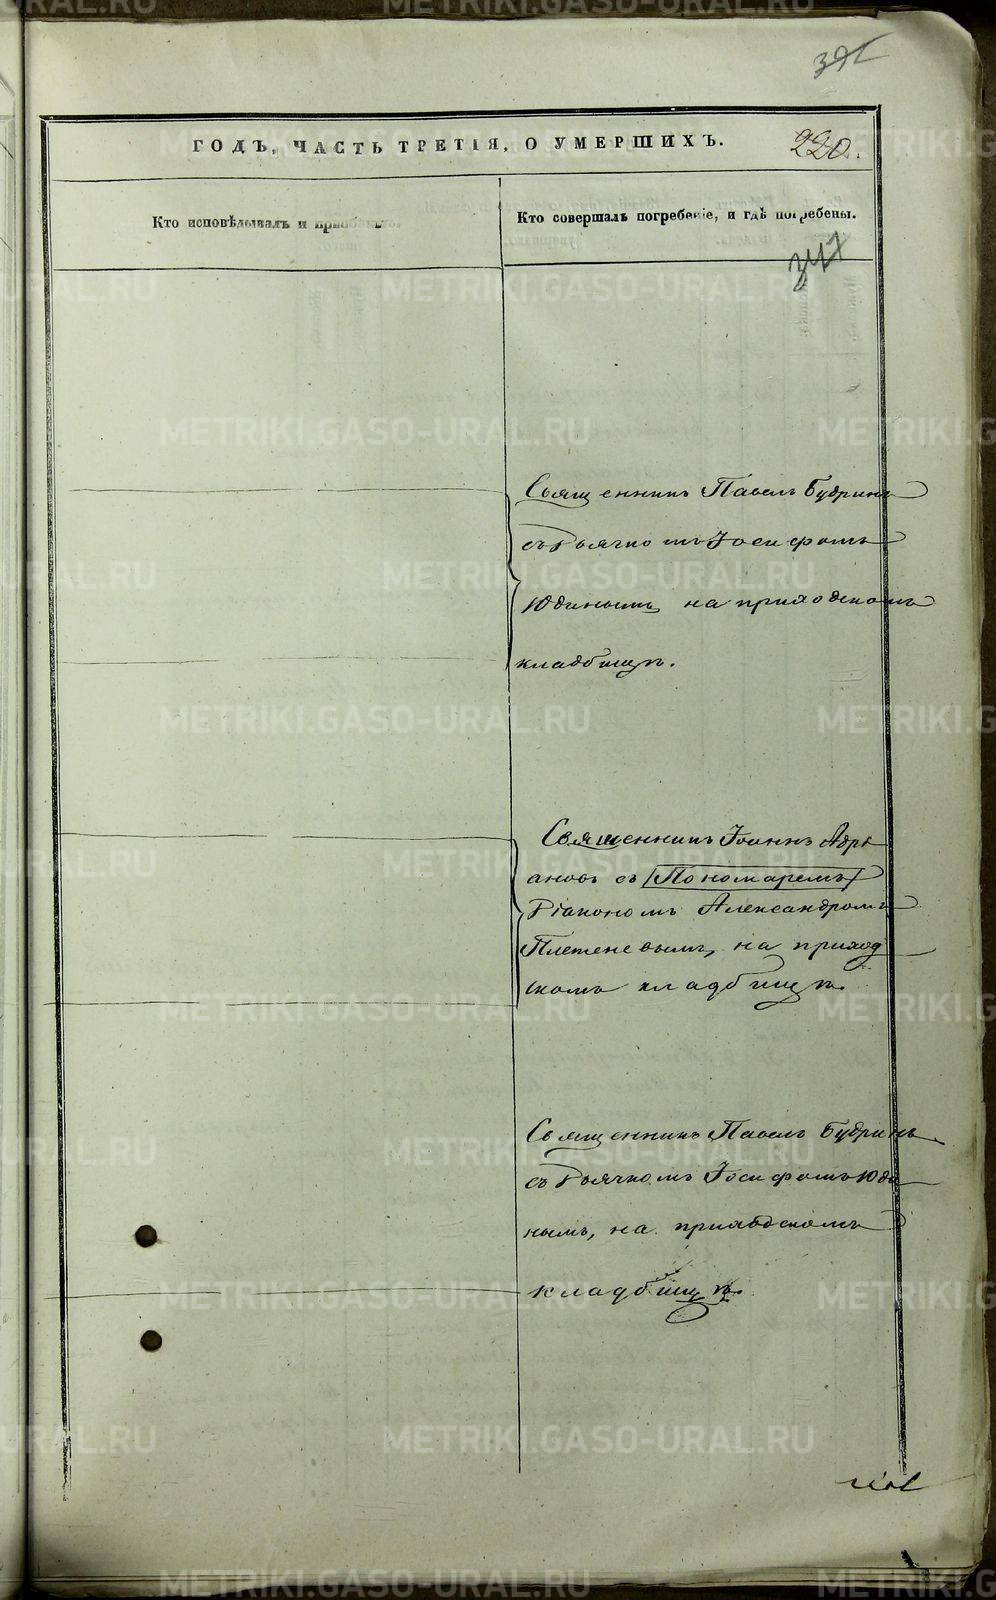 391
ГОДЪ, ЧАСТЬ ТРЕТІЯ, О УМЕРШИХЪ.
220.
Кто исповѣдывалъ и пріобщалъ.
Кто совершалъ погребеніе, и гдѣ погребены.
347
Священникъ Павелъ Будринъ
съ Дьячкомъ Іосифомъ
Юдинымъ на приходскомъ
кладбищѣ.
Священникъ Іоаннъ Адрі
ановъ съ Пономаремъ
Діакономъ Александромъ
Плетеневымъ, на приход
скомъ кладбищѣ.
Священникъ Павелъ Будринъ
съ Дьячкомъ Іосифомъ Юди
нымъ, на приходскомъ
кладбищѣ.
METRIKI.GASO-URAL.RU